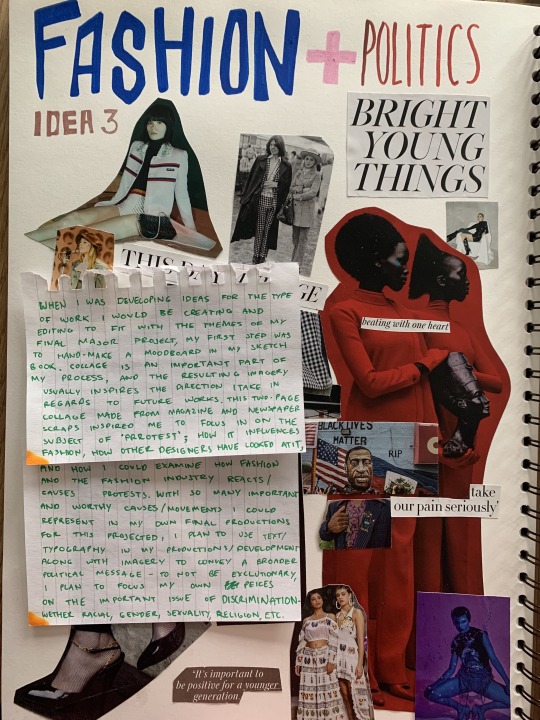 FASHION + POLITICS
IDEA 3
BRIGHT
YOUNG
THINGS
THIS DAY
GE
beating with one heart
WHEN I WAS DEVELOPING IDEAS FOR THE TYPE
OF WORK I WOULD BE CREATING AND
EDITING TO FIT WITH THE THEMES OF MY
FINAL MAJOR PROJECT, MY FIRST STEP WAS
TO HAND-MAKE A MOODBOARD IN MY SKETCH
BOOK. COLLAGE IS AN IMPORTANT PART OF
MY PROCESS, AND THE RESULTING IMAGERY
USUALLY INSPIRES THE DIRECTION I TAKE IN
REGARDS TO FUTURE WORKS. THIS TWO-PAGE
COLLAGE MADE FROM MAGAZINE AND NEWSPAPER
SCRAPS INSPIRED ME TO FOCUS IN ON THE
SUBJECT OF 'PRROTEST'; HOW IT INFLUENCES
FASHION, HOW OTHER DESIGNERS HAVE LOOKED AT IT,
AND HOW I COULD EXAMINE HOW FASHION
AND THE FASHION INDUSTRY REACTS/
CAUSES PROTESTS. WITH SO MANY IMPORTANT
AND WORTHY CAUSES/MOVEMENTS I COULD
REPRESENT IN MY OWN FINAL PRODUCTIONS
FOR THIS PROJECTED, I PLAN TO USE TEXT/
TYPOGRAPHY IN MY PRODUCTIONS/DEVELOPMENT
ALONG WITH IMAGERY TO CONVEY A BROADER
POLITICAL MESSAGE - TO NOT BE EXCLUTIONARY,
I PLAN TO FOCUS MY OWN PEICES
ON THE IMPORTANT ISSUE OF DISCRIMINATION-
WETHER RACIAL, GENDER, SEXUALITY, RELIGION, ETC.
BLACK LIVES
MATTER
RIP
take
our pain seriously'
"It's important to
be positive for a younger
generation.